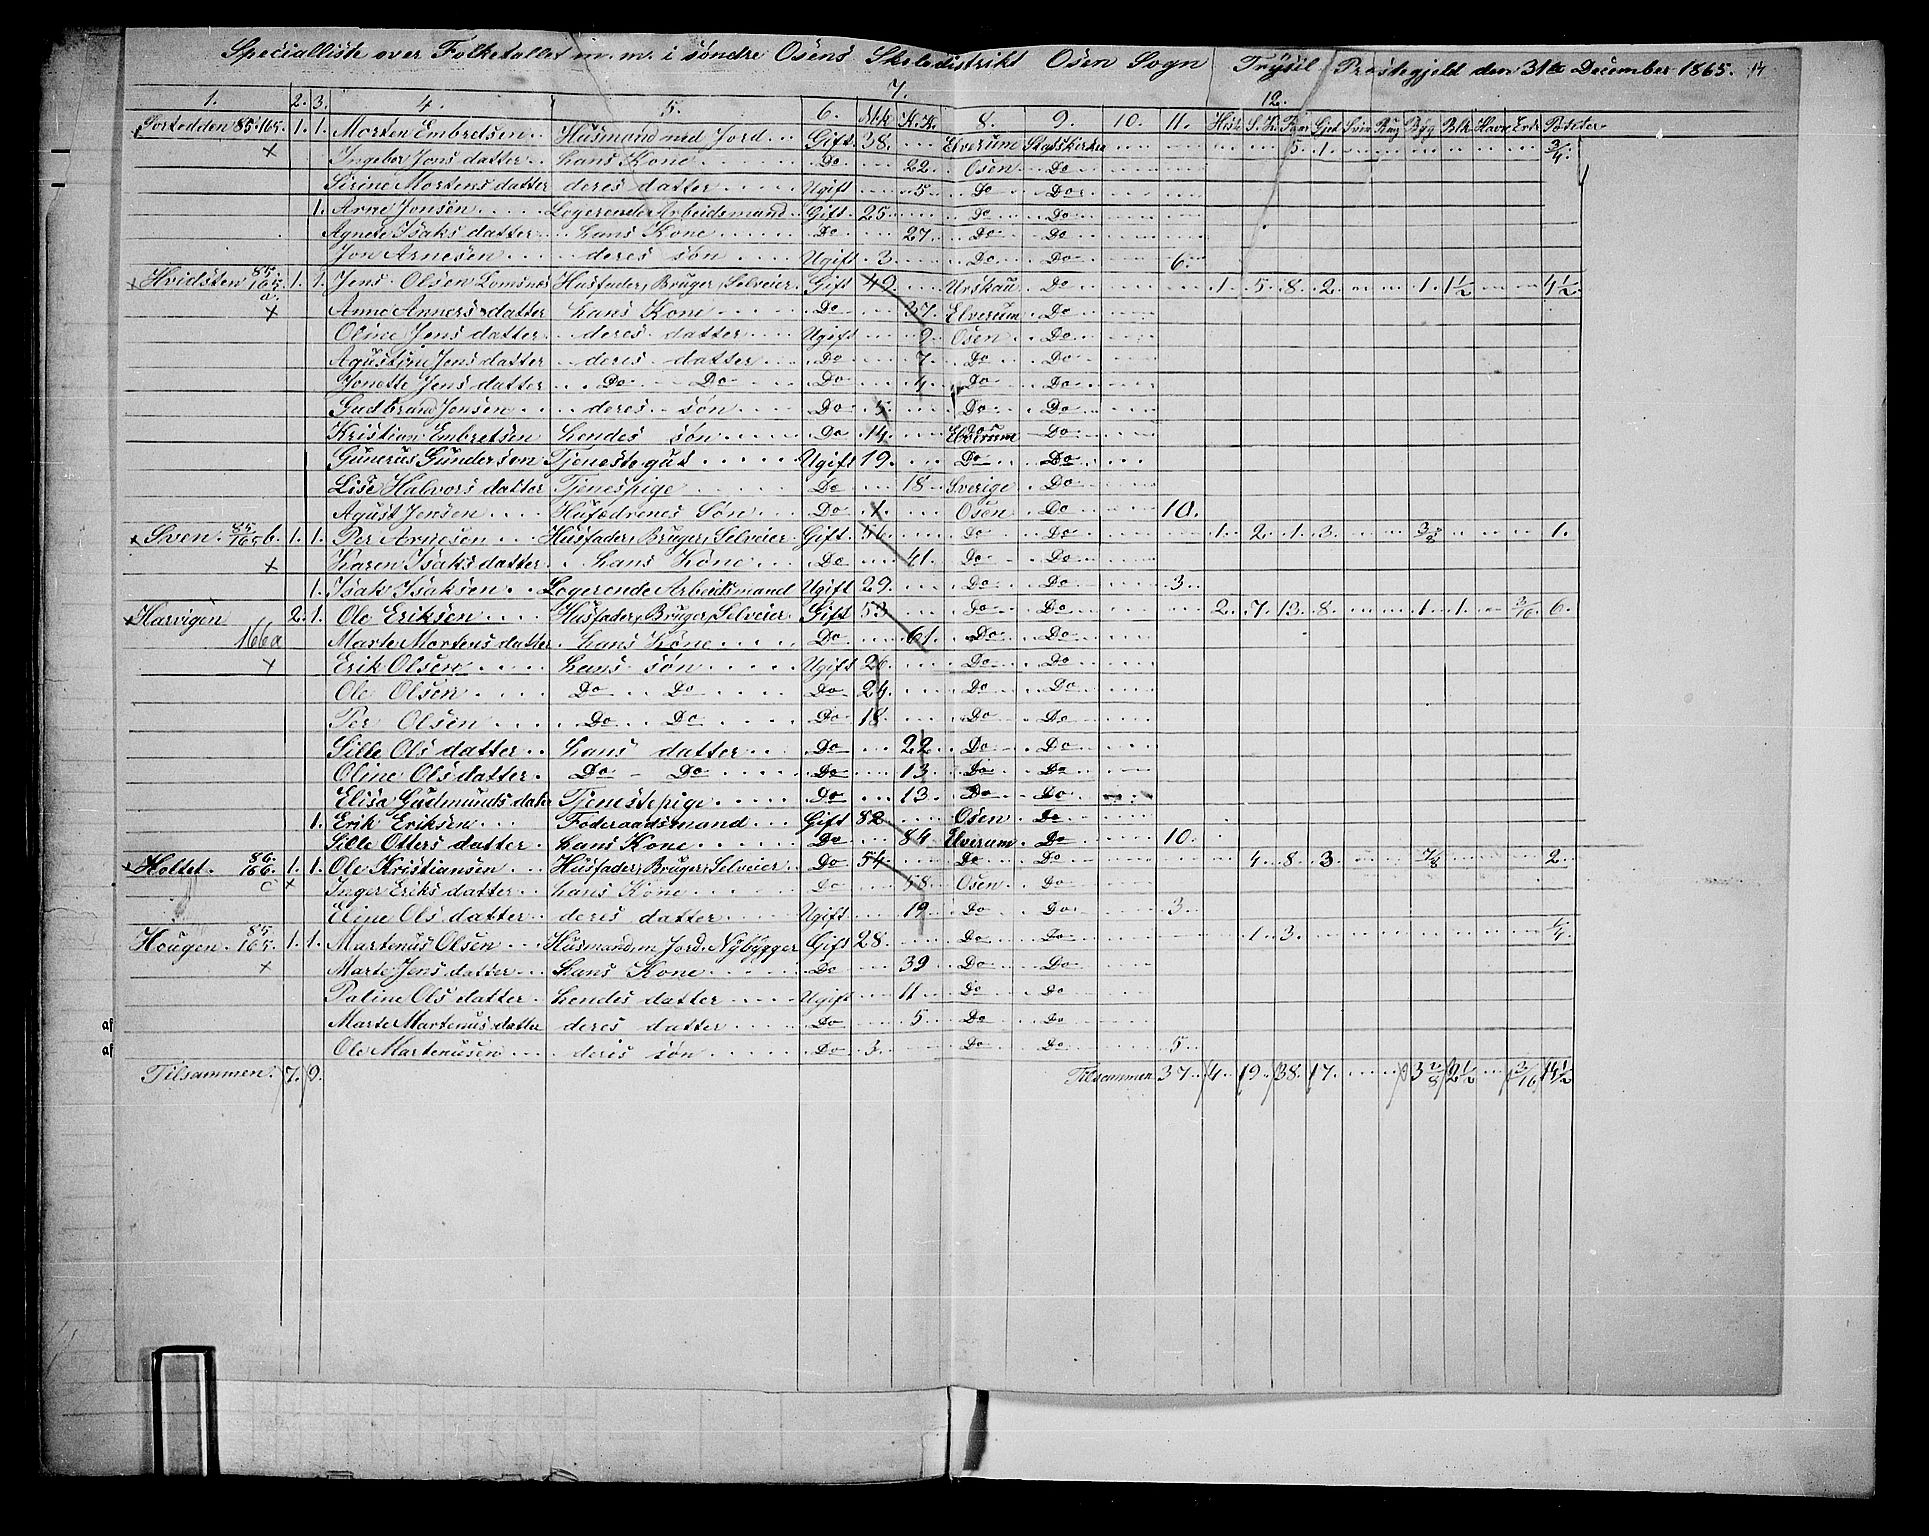 Specialliste over Folketallet m. m. i søndre Osens Skoledistrikt Osen Sogn Trysil Præstegjeld den 31te December 1865. 14
1. 2. 3. 4. 5. 6. 7. 8. 9. 10. 11. 12.
Mk. K.K. Heste S. Kr Faar Gjet Svin Rug Byg Blk Havre Erte Poteter
85. 165. 1. 1. Morten Embretsen Husmand med Jord Gift 38. Elverum Statskirken 5. 1. 3/4.
Ingebor Jonsdatter hans Kone Do 22. Osen Do
Sirine Mortensdatter deres datter Ugift 5. Do Do
1. Arne Jonsen Logerende Arbeidsmand Gift 25. Do Do
Agnete Isaksdatter hans Kone Do 27. Do Do
Jon Arnesen deres søn Ugift 3. Do Do 6.
Hvidsten 85. 165. a. 1. 1. Jens Olsen Lomsnes Husfader, Bruger, Selveier Gift 49. Urskau Do 1. 5. 8. 2. 1. 1 1/2 4 1/2
Anne Annersdatter hans Kone Do 37. Elverum Do
Oline Jensdatter deres datter Ugift 9 Osen Do
Agustine Jensdatter deres datter Do 7. Do Do
Jonette Jensdatter Do Do Do 4 Do Do
Gudbrand Jensen deres søn Do 5. Do Do
Kristian Embretsen hendes søn Do 14. Elverum Do
Gunerus Gundersen Tjenestegut Ugift 19. Do Do
Lise Halvorsdatter Tjenespige Do 18 Sverige Do
Agust Jensen Husfadrenes Søn Do 1. Osen Do 10.
Sven 85 165 b. 1. 1. Per Arnesen Husfader, Bruger, Selveier Gift 56. Do Do 1. 2. 1. 3. 3/8 1.
Karen Isaksdatter hans Kone Do 61. Do Do
1. Isak Isaksen Logerende Arbeidsmand Ugift 29. Do Do 3.
Harvigen 166a 2. 1. Ole Eriksen Husfader, Bruger, Selveier Gift 53 Do Do 2. 7. 13. 8. 1. 1. 3/16 6.
Marte Mortensdatter hans Kone Do 61. Do Do
Erik Olsen hans søn Ugift 26 Do Do
Ole Olsen Do Do Do 24 Do Do
Per Olsen Do Do Do 18 Do Do
Sille Olsdatter hans datter Do 22 Do Do
Oline Olsdatter Do Do Do 13. Do Do
Elisa Gudmundsdatter Tjenestepige Do 13. Do Do
1. Erik Eriksen Føderaadsmand Gift 82 Osen Do
Sille Ottersdatter hans Kone Do 84 Elverum Do 10.
Holtet 86. 166. c 1. 1. Ole Kristiansen Husfader, Bruger, Selveier Do 54 Do Do 4. 8. 3. 7/8 2.
Inger Eriksdatter hans Kone Do 58 Osen Do
Eline Olsdatter deres datter Ugift 19. Do Do 3.
Hougen 85. 165. 1. 1. Martenus Olsen Husmand m Jord. Nybygger Gift 28. Do Do 1. 3. 1/4
Marte Jensdatter hans Kone Do 39 Do Do
Paline Olsdatter hendes datter Ugift 11 Do Do
Marte Martenusdatter deres datter Do 5 Do Do
Ole Martenusen deres søn Do 3. Do Do 5
Tilsammen. 7. 9. Tilsammen 37. 4. 19. 38. 17. 3 2/8 2 1/2 3/16 14 1/2
af
af